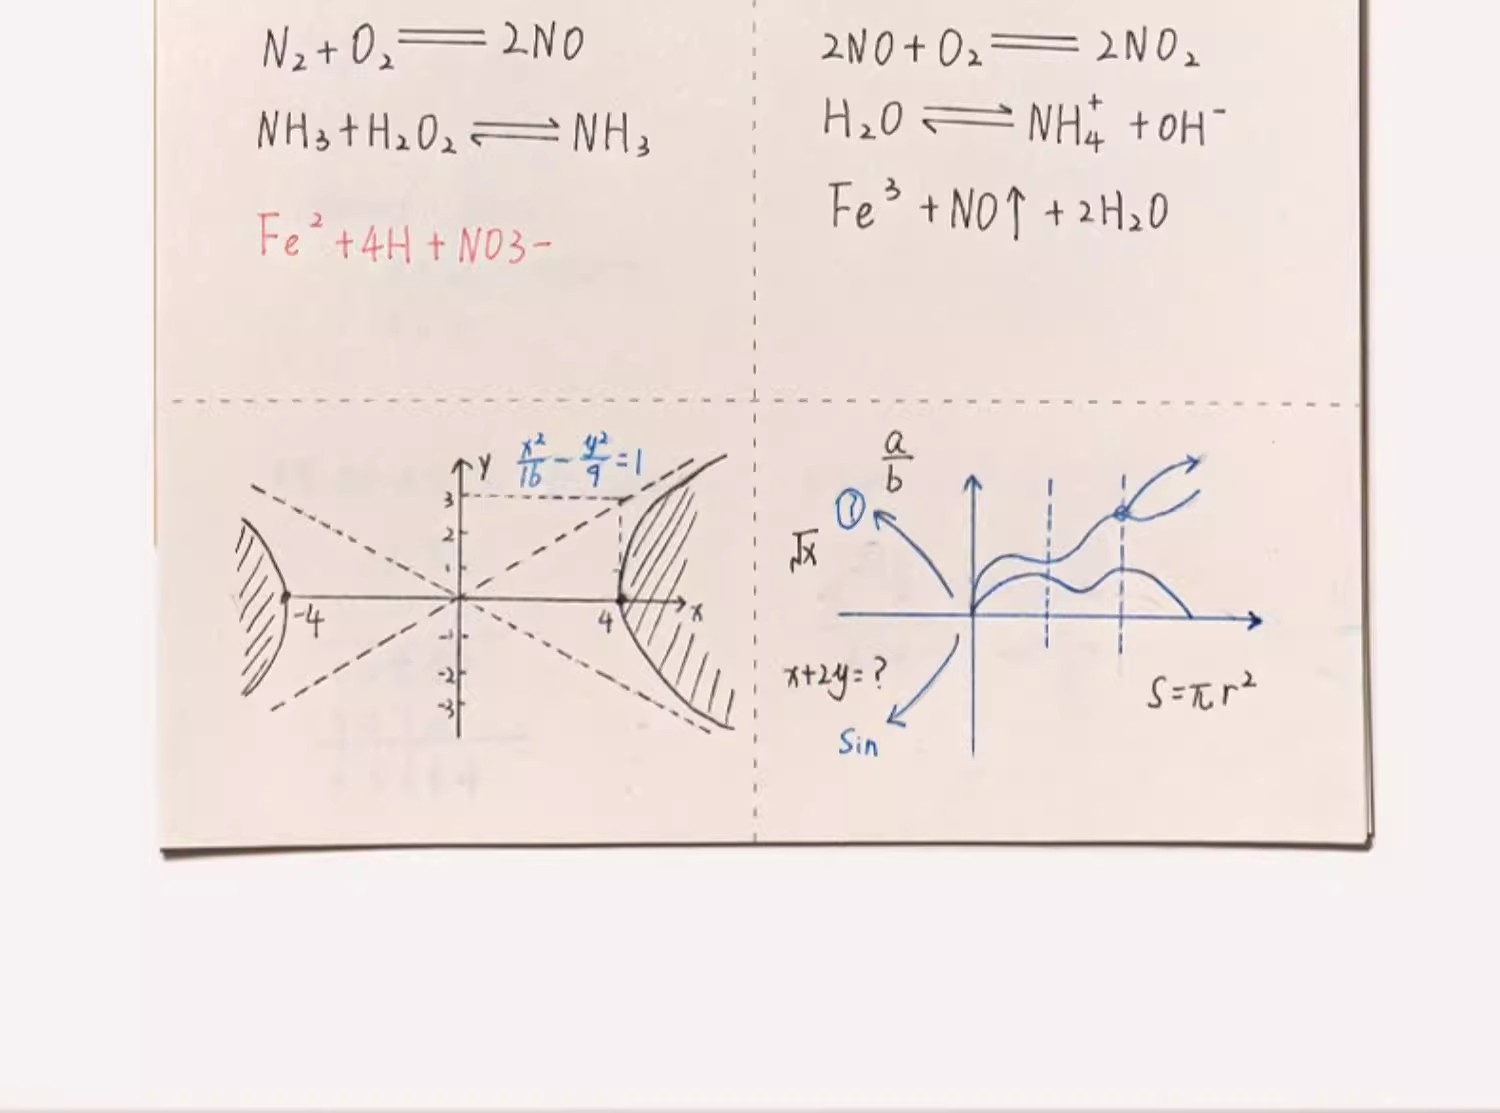 N₂ + O₂ ══ 2NO
NH₃ + H₂O₂ ⇌ NH₃
Fe² + 4H + NO3-
2NO + O₂ ══ 2NO₂
H₂O ⇌ NH₄⁺ + OH⁻
Fe³ + NO↑ + 2H₂O
y
x²/16 - y²/9 = 1
3
2
1
-4
4
x
-1
-2
-3
a/b
①
√x
x+2y=?
S=πr²
Sin